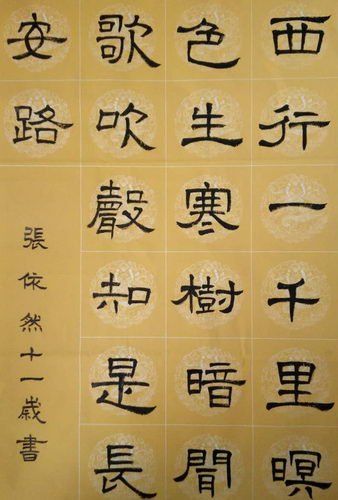 西行一千里暝
色生寒樹暗聞
歌吹聲知是長
安路
張依然十一歲書